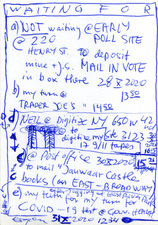 WAITING FOR
a) NOT waiting @ EARLY
@ 220 POLL SITE
HENRY ST. TO deposit
mine + J.S. MAIL IN VOTE
in box there 28 X 2020
b) my turn @ 1350
TRADER JOE'S ~ 1450
c) NEIL @ Digital NY 650 W 42
to
17 9/11 tapes
d) @ Post office 30 X 2020
to mail Jauwar Costle
books (on EAST-BROADWAY
e) my turn
COVID-19 that @ Gouv. Hospital
31 X 2020 1234